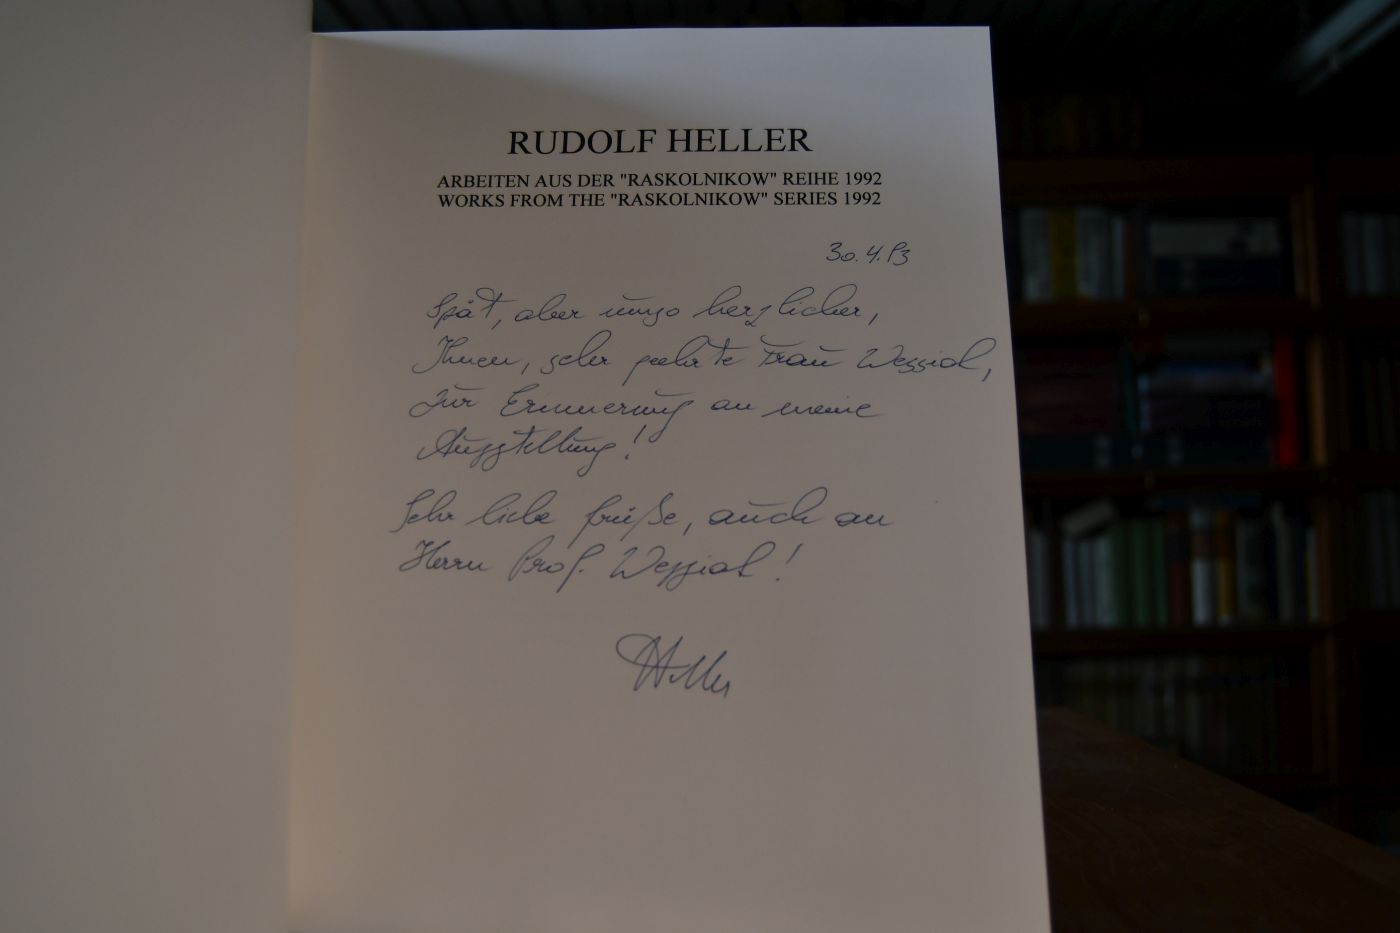 RUDOLF HELLER
ARBEITEN AUS DER "RASKOLNIKOW" REIHE 1992
WORKS FROM THE "RASKOLNIKOW" SERIES 1992
30.4.93
Spät, aber umso herzlicher,
Ihnen, sehr geehrte Frau
zur Erinnerung an meine
Ausstellung!
Sehr liebe Grüße, auch an
Herrn Prof.
Heller